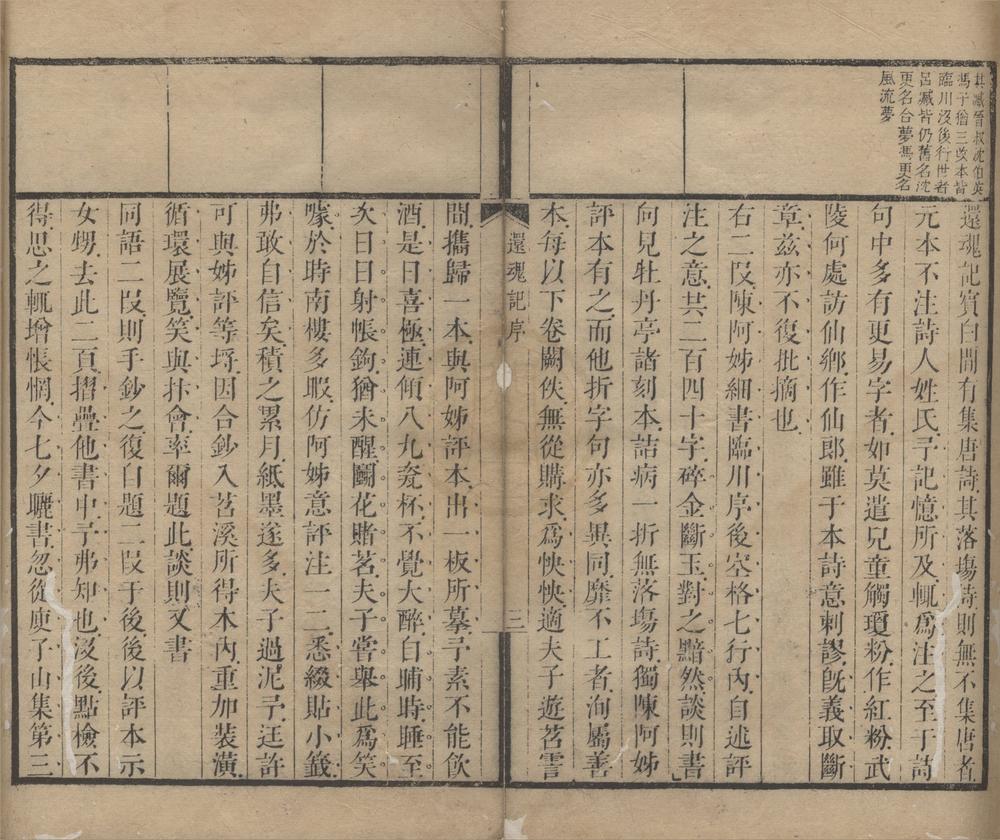 其臧晉叔沈伯英
馮子猶三改本皆
臨川沒後行世者
呂臧皆仍舊名沈
更名合夢馮更名
風流夢
還魂記賓白間有集唐詩其落塲詩則無不集唐者
元本不注詩人姓氏予記憶所及輒爲注之至于詩
句中多有更易字者如莫遣兒童觸瓊粉作紅粉武
陵何處訪仙鄉作仙郎雖于本詩意刺謬旣義取斷
章兹亦不復批摘也
右二段陳阿姊細書臨川序後空格七行內自述評
注之意共二百四十字碎金斷玉對之黯然談則書
向見牡丹亭諸刻本詰病一折無落塲詩獨陳阿姊
評本有之而他折字句亦多異同靡不工者洵屬善
本每以下卷闕佚無從購求爲怏怏適夫子遊苕霅
還魂記序
三
間攜歸一本與阿姊評本出一板所摹予素不能飲
酒是日喜極連傾八九瓷杯不覺大醉自晡時睡至
次日日射帳鉤猶未醒鬭花賭茗夫子嘗舉此爲笑
噱於時南樓多暇仿阿姊意評注一二悉綴貼小籤
弗敢自信矣積之累月紙墨遂多夫子過泥予迋許
可與姊評等埒因合鈔入苕溪所得本內重加裝潢
循環展覽笑與抃會率爾題此談則又書
同語二段則手鈔之復自題二段于後後以評本示
女甥去此二頁摺疊他書中予弗知也沒後點檢不
得思之輒增悵惘今七夕曬書忽從庾子山集第三